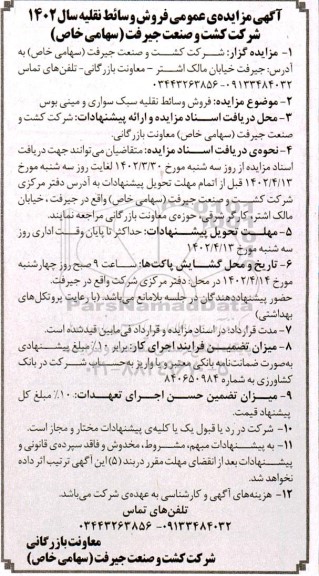 آگهی مزایده‌ی عمومی فروش وسائط نقلیه سال ۱۴۰۲
شرکت کشت و صنعت جیرفت (سهامی خاص)
۱- مزایده گزار: شرکت کشت و صنعت جیرفت (سهامی خاص) به
آدرس: جیرفت خیابان مالک اشتر - معاونت بازرگانی- تلفن‌های تماس
۰۹۱۳۳۴۸۴۰۳۲- ۰۳۴۴۳۲۶۳۸۵۶
۲- موضوع مزایده: فروش وسائط نقلیه سبک سواری و مینی بوس
۳- محل دریافت اسناد مزایده و ارائه پیشنهادات: شرکت کشت و
صنعت جیرفت (سهامی خاص) معاونت بازرگانی.
۴- نحوه‌ی دریافت اسناد مزایده: متقاضیان می‌توانند جهت دریافت
اسناد مزایده از روز سه شنبه مورخ ۱۴۰۲/۳/۳۰ لغایت روز سه شنبه مورخ
۱۴۰۲/۴/۱۳ قبل از اتمام مهلت تحویل پیشنهادات به آدرس دفتر مرکزی
شرکت کشت و صنعت جیرفت (سهامی خاص) واقع در جیرفت، خیابان
مالک اشتر، کارگر شرقی، حوزه‌ی معاونت بازرگانی مراجعه نمایند.
۵- مهلت تحویل پیشنهادات: حداکثر تا پایان وقت اداری روز
سه شنبه مورخ ۱۴۰۲/۴/۱۳
۶- تاریخ و محل گشایش پاکت‌ها: ساعت ۹ صبح روز چهارشنبه
مورخ ۱۴۰۲/۴/۱۴ در محل: دفتر مرکزی شرکت واقع در جیرفت.
حضور پیشنهاددهندگان در جلسه بلامانع می‌باشد. (با رعایت پروتکل‌های
بهداشتی)
۷- مدت قرارداد: در اسناد مزایده و قرارداد فی مابین قید شده است.
۸- میزان تضمین فرایند اجرای کار: برابر ۱۰٪ مبلغ پیشنهادی
به صورت ضمانت‌نامه بانکی معتبر و یا واریز به حساب شرکت در بانک
کشاورزی به شماره ۸۴۰۶۵۰۹۸۲
۹- میزان تضمین حسن اجرای تعهدات: ۱۰٪ مبلغ کل
پیشنهاد قیمت.
۱۰- شرکت در رد یا قبول یک یا کلیه‌ی پیشنهادات مختار و مجاز است.
۱۱- به پیشنهادات مبهم، مشروط، مخدوش و فاقد سپرده‌ی قانونی و
پیشنهادات بعد از انقضای مهلت مقرر در بند (۵) این آگهی ترتیب اثر داده
نخواهد شد.
۱۲- هزینه‌های آگهی و کارشناسی به عهده‌ی شرکت می‌باشد.
تلفن‌های تماس
۰۹۱۳۳۴۸۴۰۳۲- ۰۳۴۴۳۲۶۳۸۵۶
معاونت بازرگانی
شرکت کشت و صنعت جیرفت (سهامی خاص)